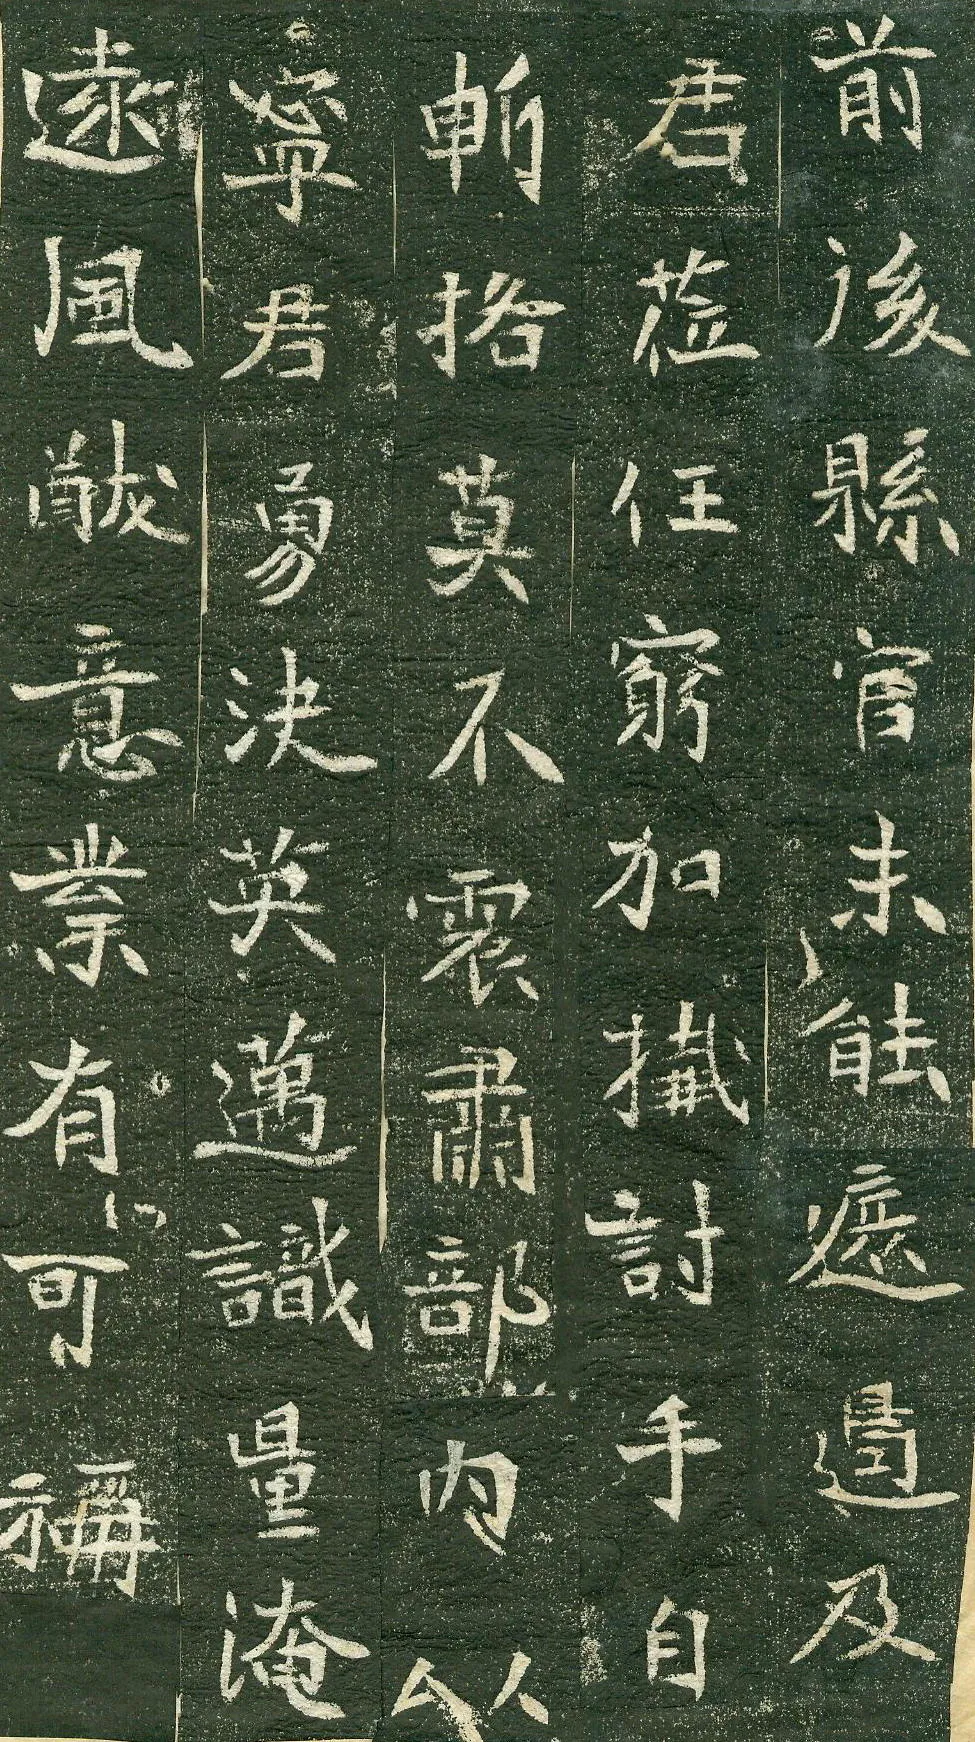 前後縣官未能遮遏及
君莅任窮加討手自
斬格莫不震肅部內以
寧君勇決英邁識量淹
遠風猷意業有可稱